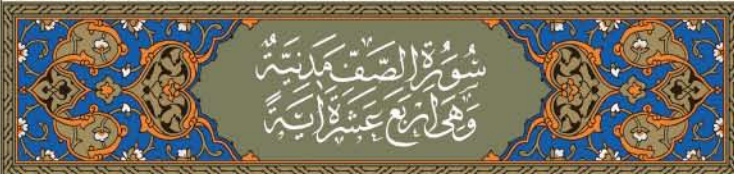 سُورَةُ الصَّفِّ مَدَنِيَّةٌ
وَهِىَ اَرْبَعَ عَشْرَةَ اٰيَةً